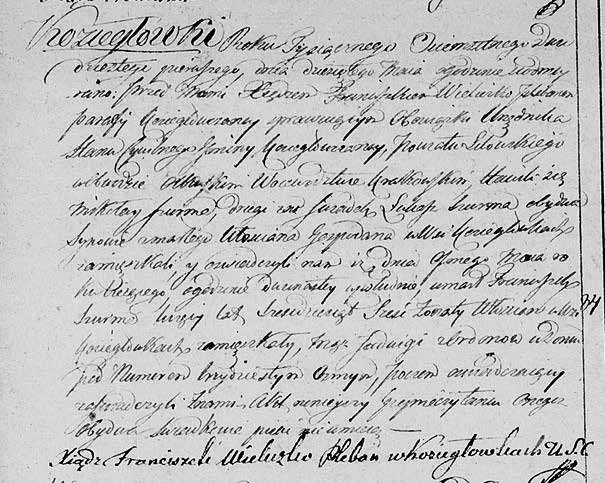 Koziegłówki Roku Tysiącznego Osiemsetnego Dwu
dziestego pierwszego, dnia dziewiątego Maja o godzinie siódmey
rano. przed Nami Xiędzem Franciszkiem Wieluzko Plebanem
parafij Koziegłowskiey sprawuiącym Obowiązki Urzędnika
Stanu Cywilnego Gminy Koziegłowskiey, Powiatu Lelowskiego
w Obwodzie Olkuskim Woiewództwie Krakowskim, stawili się
Mikołay Szurma, drugi zaś świadek Łukasz Szurma obydwa
Synowie zmarłego Włościana Gospodarza w Wsi Koziegłówkach
zamięszkali, y oświadczyli nam iż dnia Osmego Maia ro
ku bieżącego o godzinie dwunastey w południe umarł Franciszek
Szurma liczący lat Sześćdziesiąt Sześć Żonaty Włościan w Wsi
Koziegłówkach zamięszkały, mąż Jadwigi w domu
pod Numerem trzydziestym Osmym, poczem oświadczaiący
z Nami Akt ninieyszy po przeczytaniu onegoż
Obydwa świadkowie pisać nie umieią —
Xiądz Franciszek Wieluzko Pleban w Koziegłowkach U.S.C.